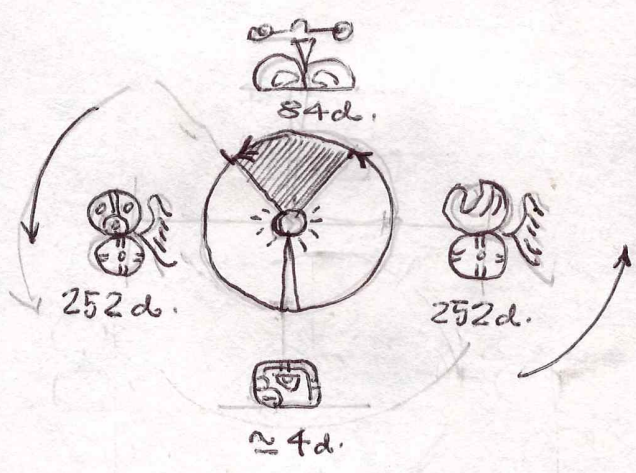 84d.
252d.
252d.
≃4d.